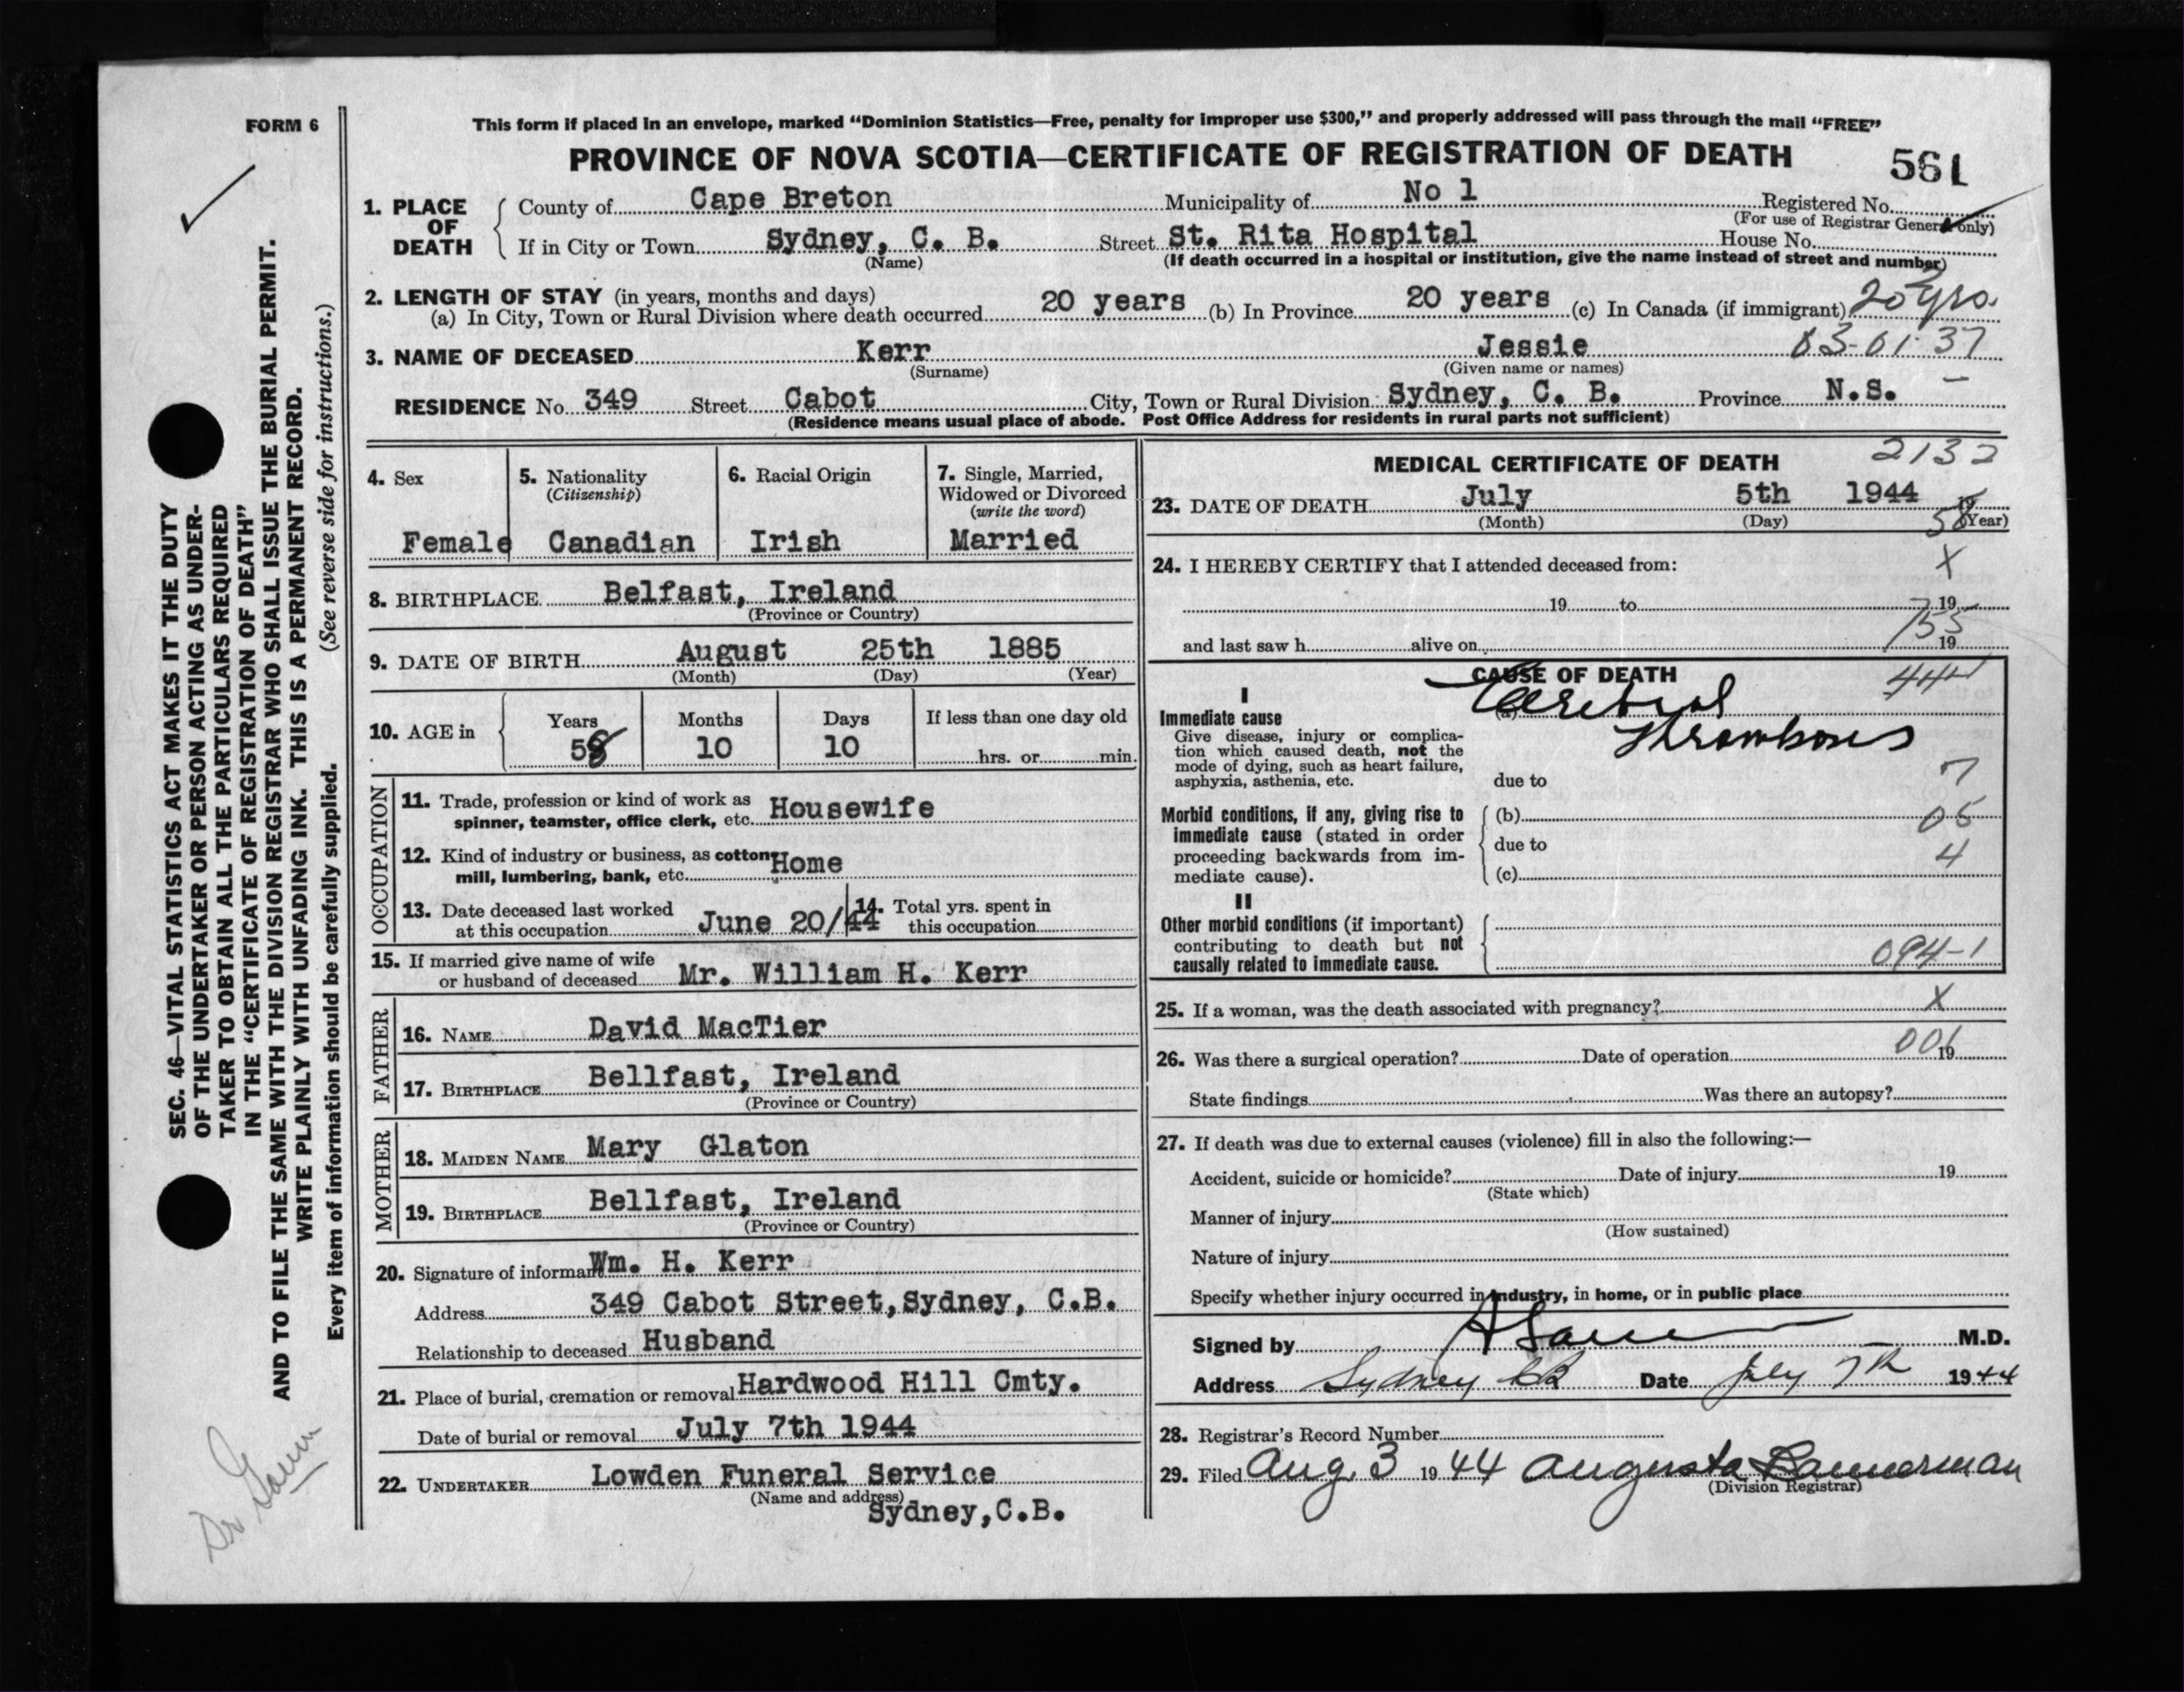 FORM 6
This form if placed in an envelope, marked “Dominion Statistics—Free, penalty for improper use $300,” and properly addressed will pass through the mail “FREE”
PROVINCE OF NOVA SCOTIA—CERTIFICATE OF REGISTRATION OF DEATH 561
1. PLACE OF DEATH
County of Cape Breton Municipality of No 1 Registered No.
(For use of Registrar General only)
If in City or Town Sydney, C. B. Street St. Rita Hospital House No.
(Name) (If death occurred in a hospital or institution, give the name instead of street and number)
2. LENGTH OF STAY (in years, months and days)
(a) In City, Town or Rural Division where death occurred 20 years (b) In Province 20 years (c) In Canada (if immigrant) 20 yrs.
3. NAME OF DECEASED Kerr Jessie 03-01-37
(Surname) (Given name or names)
RESIDENCE No. 349 Street Cabot City, Town or Rural Division Sydney, C. B. Province N.S.
(Residence means usual place of abode. Post Office Address for residents in rural parts not sufficient)
4. Sex
Female
5. Nationality
(Citizenship)
Canadian
6. Racial Origin
Irish
7. Single, Married,
Widowed or Divorced
(write the word)
Married
8. BIRTHPLACE Belfast, Ireland
(Province or Country)
9. DATE OF BIRTH August 25th 1885
(Month) (Day) (Year)
10. AGE in
Years Months Days If less than one day old
58 10 10 hrs. or min.
OCCUPATION
11. Trade, profession or kind of work as
spinner, teamster, office clerk, etc. Housewife
12. Kind of industry or business, as cotton
mill, lumbering, bank, etc. Home
13. Date deceased last worked
at this occupation June 20/44
14. Total yrs. spent in
this occupation
15. If married give name of wife
or husband of deceased Mr. William H. Kerr
FATHER
16. NAME David MacTier
17. BIRTHPLACE Bellfast, Ireland
(Province or Country)
MOTHER
18. MAIDEN NAME Mary Glaton
19. BIRTHPLACE Bellfast, Ireland
(Province or Country)
20. Signature of informant Wm. H. Kerr
Address 349 Cabot Street, Sydney, C.B.
Relationship to deceased Husband
21. Place of burial, cremation or removal Hardwood Hill Cmty.
Date of burial or removal July 7th 1944
22. UNDERTAKER Lowden Funeral Service
(Name and address)
Sydney, C.B.
MEDICAL CERTIFICATE OF DEATH 2132
23. DATE OF DEATH July 5th 1944 19
(Month) (Day) (Year)
58
24. I HEREBY CERTIFY that I attended deceased from: X
19 to 19
and last saw h alive on 19
CAUSE OF DEATH
I
Immediate cause
Give disease, injury or complica-
tion which caused death, not the
mode of dying, such as heart failure,
asphyxia, asthenia, etc.
(a) Cerebral
Thrombosis
due to 7
Morbid conditions, if any, giving rise to
immediate cause (stated in order
proceeding backwards from im-
mediate cause).
(b) 05
due to 4
(c)
II
Other morbid conditions (if important)
contributing to death but not
causally related to immediate cause.
094-1
25. If a woman, was the death associated with pregnancy? X
26. Was there a surgical operation? Date of operation 19
001
State findings Was there an autopsy?
27. If death was due to external causes (violence) fill in also the following:—
Accident, suicide or homicide? Date of injury 19
(State which)
Manner of injury
(How sustained)
Nature of injury
Specify whether injury occurred in industry, in home, or in public place
Signed by M.D.
Address Sydney CB Date July 7th 1944
28. Registrar's Record Number
29. Filed Aug. 3 1944 Augusta Bannerman
(Division Registrar)
SEC. 46—VITAL STATISTICS ACT MAKES IT THE DUTY
OF THE UNDERTAKER OR PERSON ACTING AS UNDER-
TAKER TO OBTAIN ALL THE PARTICULARS REQUIRED
IN THE “CERTIFICATE OF REGISTRATION OF DEATH”
AND TO FILE THE SAME WITH THE DIVISION REGISTRAR WHO SHALL ISSUE THE BURIAL PERMIT.
WRITE PLAINLY WITH UNFADING INK. THIS IS A PERMANENT RECORD.
Every item of information should be carefully supplied. (See reverse side for instructions.)